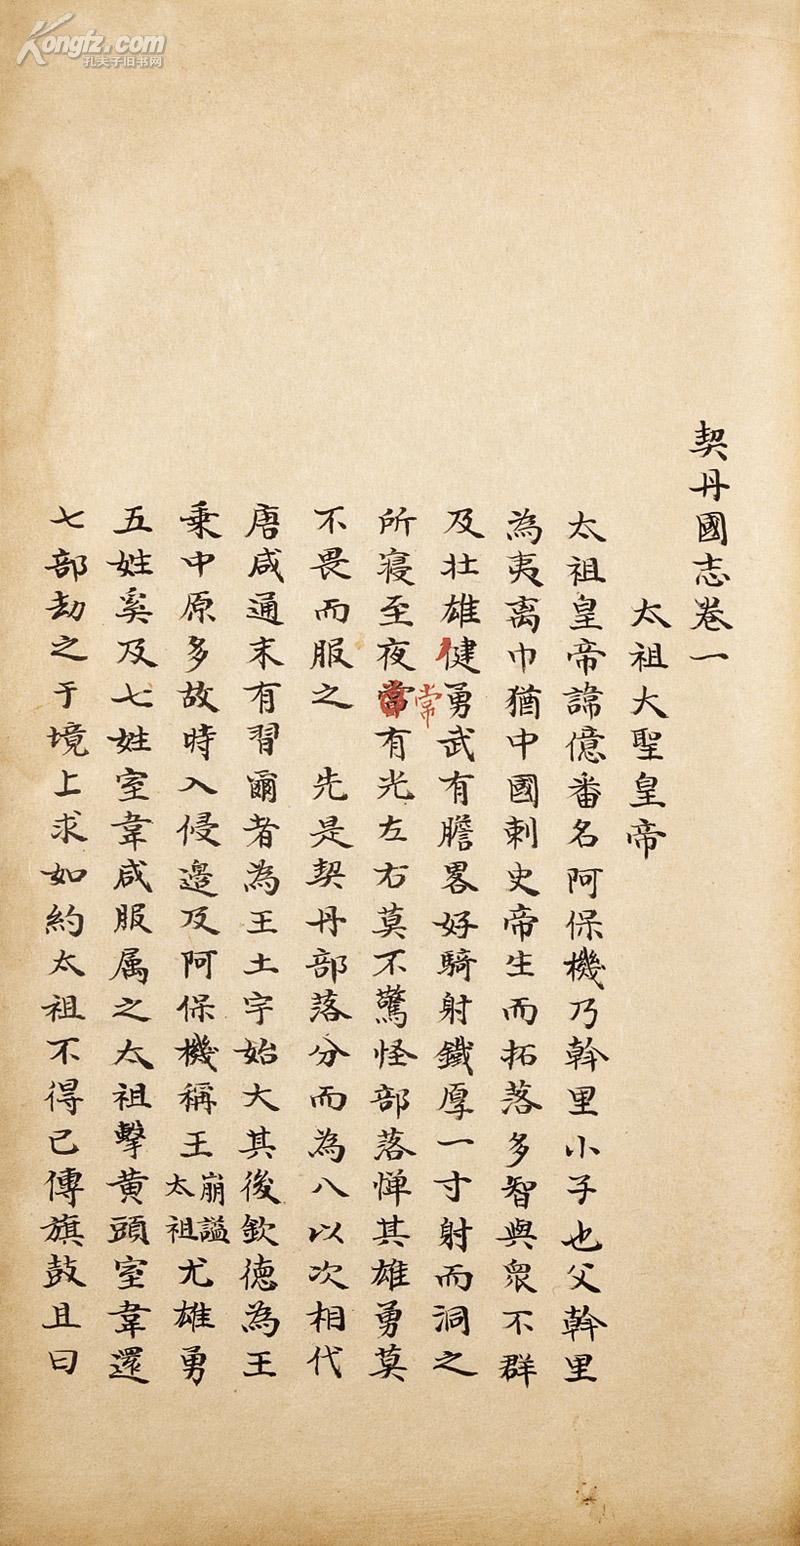 契丹國志卷一
太祖大聖皇帝
太祖皇帝諱億番名阿保機乃斡里小子也父斡里
為夷离巾猶中國刺史帝生而拓落多智與衆不群
及壮雄健勇武有膽畧好騎射鐵厚一寸射而洞之
所寝至夜常有光左右莫不驚怪部落憚其雄勇莫
不畏而服之　先是契丹部落分而為八以次相代
唐咸通末有習爾者為王土宇始大其後欽德為王
乗中原多故時入侵邊及阿保機稱王崩謚太祖尤雄勇
五姓奚及七姓室韋咸服属之太祖擊黄頭室韋還
七部劫之于境上求如約太祖不得已傳旗鼓且曰
Kongfz.com
孔夫子旧书网